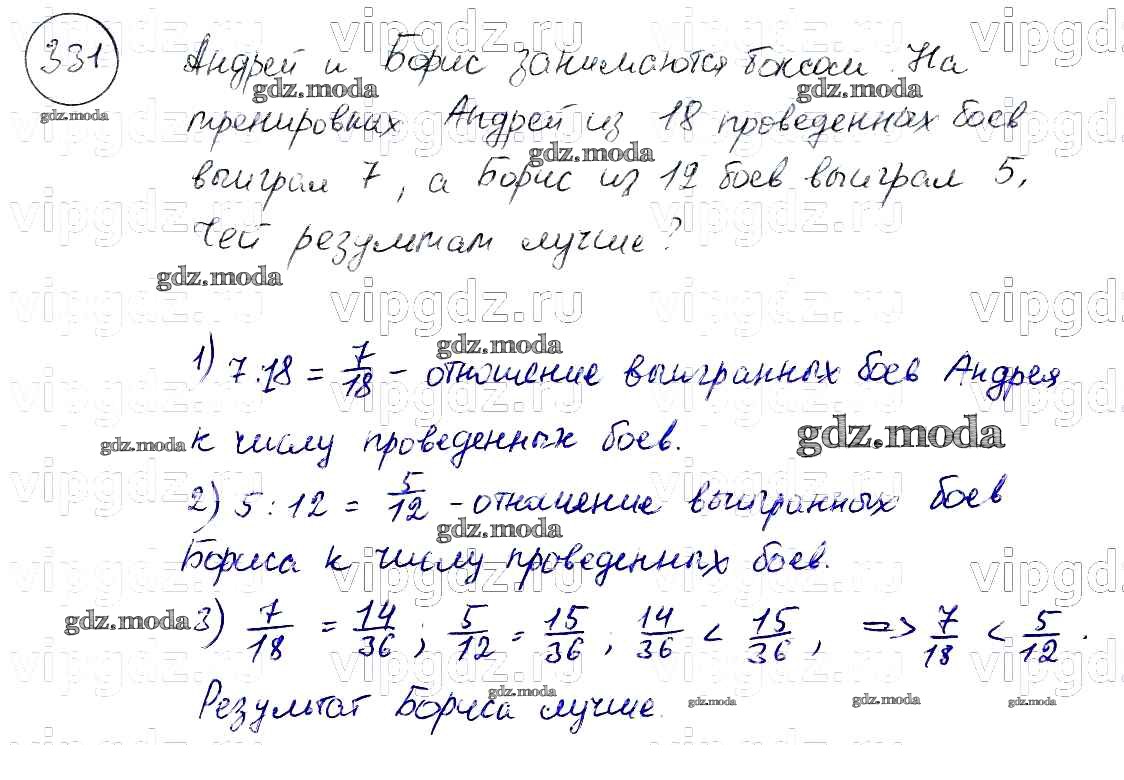 331
Андрей и Борис занимаются боксом. На
тренировках Андрей из 18 проведенных боев
выиграл 7, а Борис из 12 боев выиграл 5.
Чей результат лучше?
1) 7:18 = 7/18 - отношение выигранных боев Андрея
к числу проведенных боев.
2) 5 : 12 = 5/12 - отношение выигранных боев
Бориса к числу проведенных боев.
3) 7/18 = 14/36 ; 5/12 = 15/36 ; 14/36 < 15/36 , => 7/18 < 5/12 .
Результат Бориса лучше.
gdz.moda
vipgdz.ru